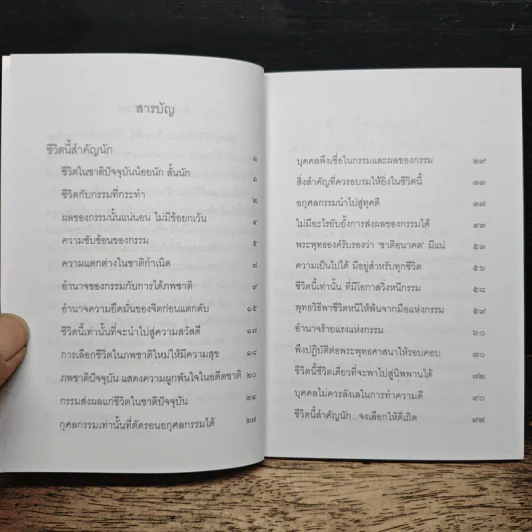 สารบัญ
ชีวิตนี้สำคัญนัก ๑
ชีวิตในชาติปัจจุบันน้อยนัก สั้นนัก ๑
ชีวิตกับกรรมที่กระทำ ๒
ผลของกรรมนั้นแน่นอน ไม่มีข้อยกเว้น ๔
ความซับซ้อนของกรรม ๕
ความแตกต่างในชาติกำเนิด ๘
อำนาจของกรรมกับการได้ภพชาติ ๙
อำนาจความยึดมั่นของจิตก่อนแตกดับ ๑๕
ชีวิตนี้เท่านั้นที่จะนำไปสู่ความสวัสดี ๑๗
การเลือกชีวิตในภพชาติใหม่ให้มีความสุข ๑๘
ภพชาติปัจจุบัน แสดงความผูกพันในอดีตชาติ ๒๐
กรรมส่งผลแก่ชีวิตในชาติปัจจุบัน ๒๔
กุศลกรรมเท่านั้นที่ตัดรอนอกุศลกรรมได้ ๒๘
บุคคลพึงเชื่อในกรรมและผลของกรรม ๒๙
สิ่งสำคัญที่ควรอบรมให้ยิ่งในชีวิตนี้ ๓๓
อกุศลกรรมนำไปสู่ทุคติ ๓๗
ไม่มีอะไรยับยั้งการส่งผลของกรรมได้ ๔๓
พระพุทธองค์รับรองว่า 'ชาติอนาคต' มีแน่ ๕๓
ความเป็นไปได้ มีอยู่สำหรับทุกชีวิต ๕๖
ชีวิตนี้เท่านั้น ที่มีโอกาสวิ่งหนีกรรม ๕๘
พุทธวิธีพาชีวิตหนีให้พ้นจากมือแห่งกรรม ๕๙
อำนาจร้ายแรงแห่งกรรม ๖๐
พึงปฏิบัติต่อพระพุทธศาสนาให้รอบคอบ ๘๐
ชีวิตนี้ชีวิตเดียวที่จะพาไปสู่นิพพานได้ ๘๒
บุคคลไม่ควรลังเลในการทำความดี ๙๐
ชีวิตนี้สำคัญนัก...จงเลือกให้ดีเถิด ๙๘